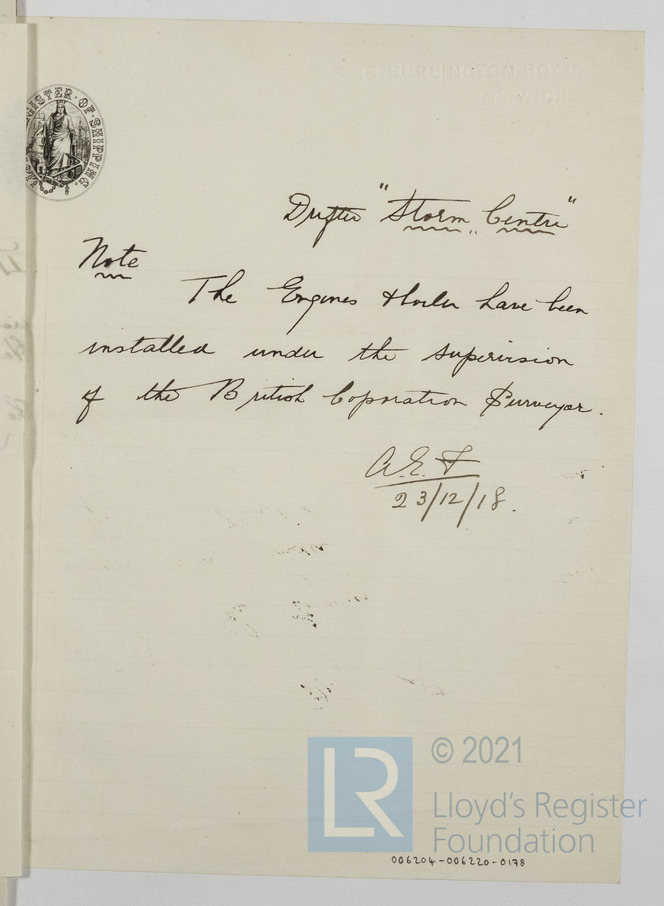 LLOYD'S REGISTER OF SHIPPING
Drifter "Storm Centre"
Note
The Engines & boiler have been
installed under the supervision
of the British Coporation Surveyor.
A.E.F
23/12/18.
© 2021
LR
Lloyd's Register
Foundation
006204-006220-0178